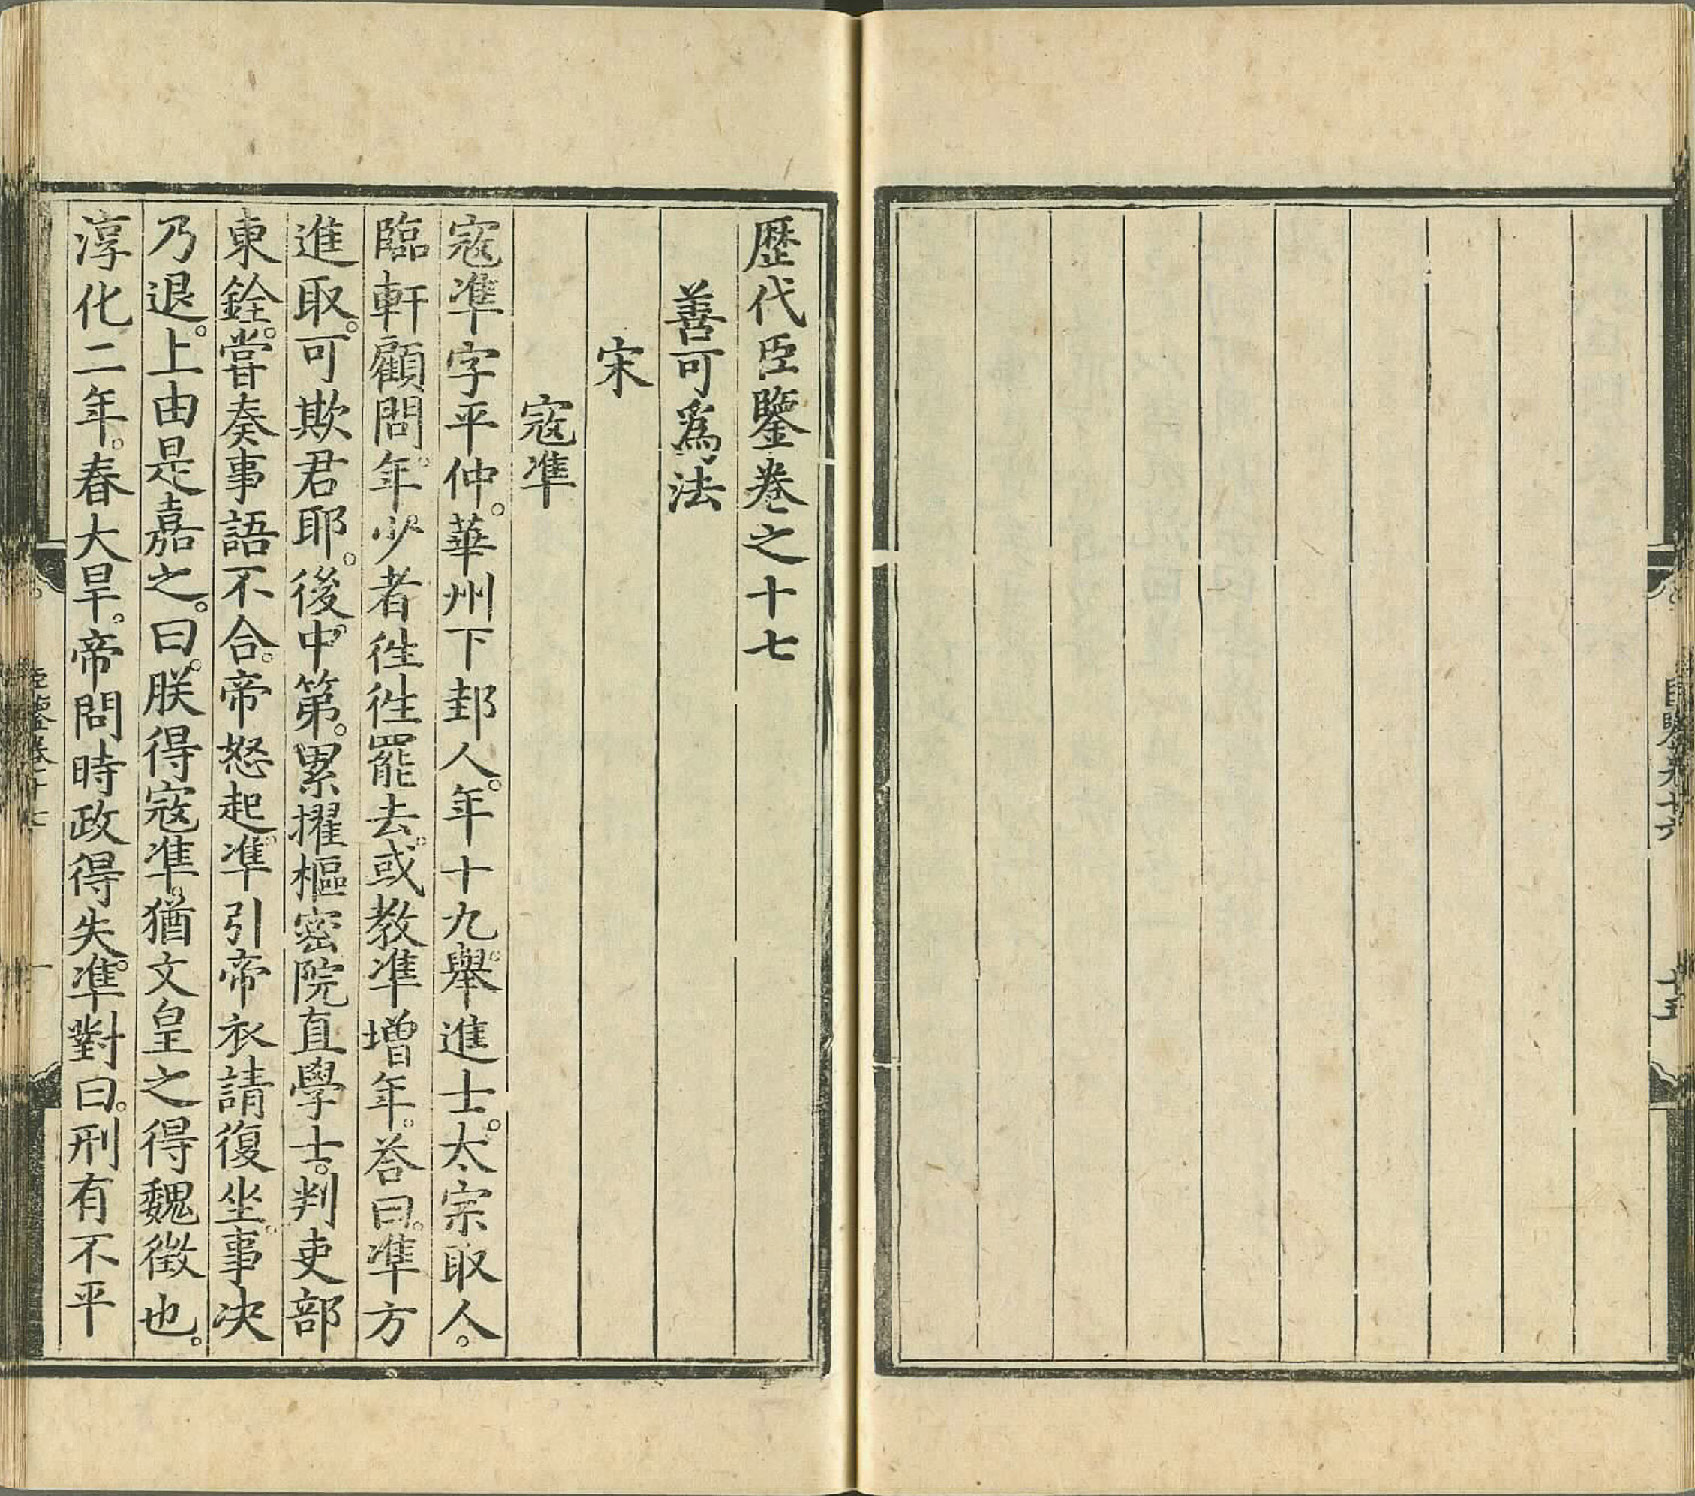 臣鑒卷十六
十五
歷代臣鑒卷之十七
善可爲法
宋
寇準
寇準字平仲。華州下邽人。年十九。舉進士。太宗取人。
臨軒顧問。年少者徃徃罷去。或教準增年。荅曰。準方
進取。可欺君耶。後中第。累擢樞密院直學士。判吏部
東銓。嘗奏事語不合。帝怒起。準引帝衣請復坐。事决
乃退。上由是嘉之。曰。朕得寇準。猶文皇之得魏徵也。
淳化二年。春大旱。帝問時政得失。準對曰。刑有不平
臣鑒卷十七
一